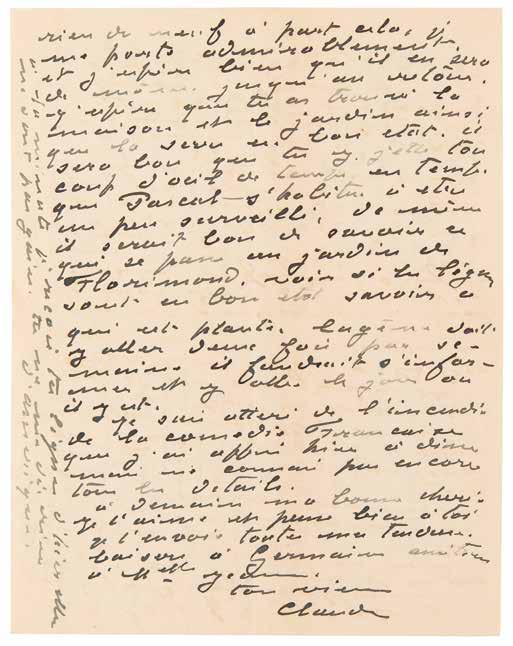 rien de neuf à part cela, je
me porte admirablement
et j'espère bien qu'il en sera
de même jusqu'au retour.
j'espère que tu as trouvé la
maison et le jardin ainsi
que la serre en bon état. il
sera bon que tu y jette ton
coup d'œil de temps en temps
que Pascal s'habitue à être
un peu surveillé; de même
il serait bon de savoir ce
qui se passe au jardin de
Florimond, voir si les légumes
sont en bon etat savoir ce
qui est planté. Eugène doit
y aller deux fois par se-
maine il faudrait s'infor-
mer et y aller le jour ou
il y est.
Je suis atterré de l'incendie
de la comedie Francaise
que j'ai appris hier à diner
mais ne connais pas encore
tous les details.
à demain ma bonne cherie
je t'aime et pense bien à toi
je t'envoie toute ma tendresse
baisers à Germaine amitiés
à Mlle
ton vieux
Claude
à la minute je reçois tes lignes d'hier elle
ne sont pas gaies. tu ne me dis rien